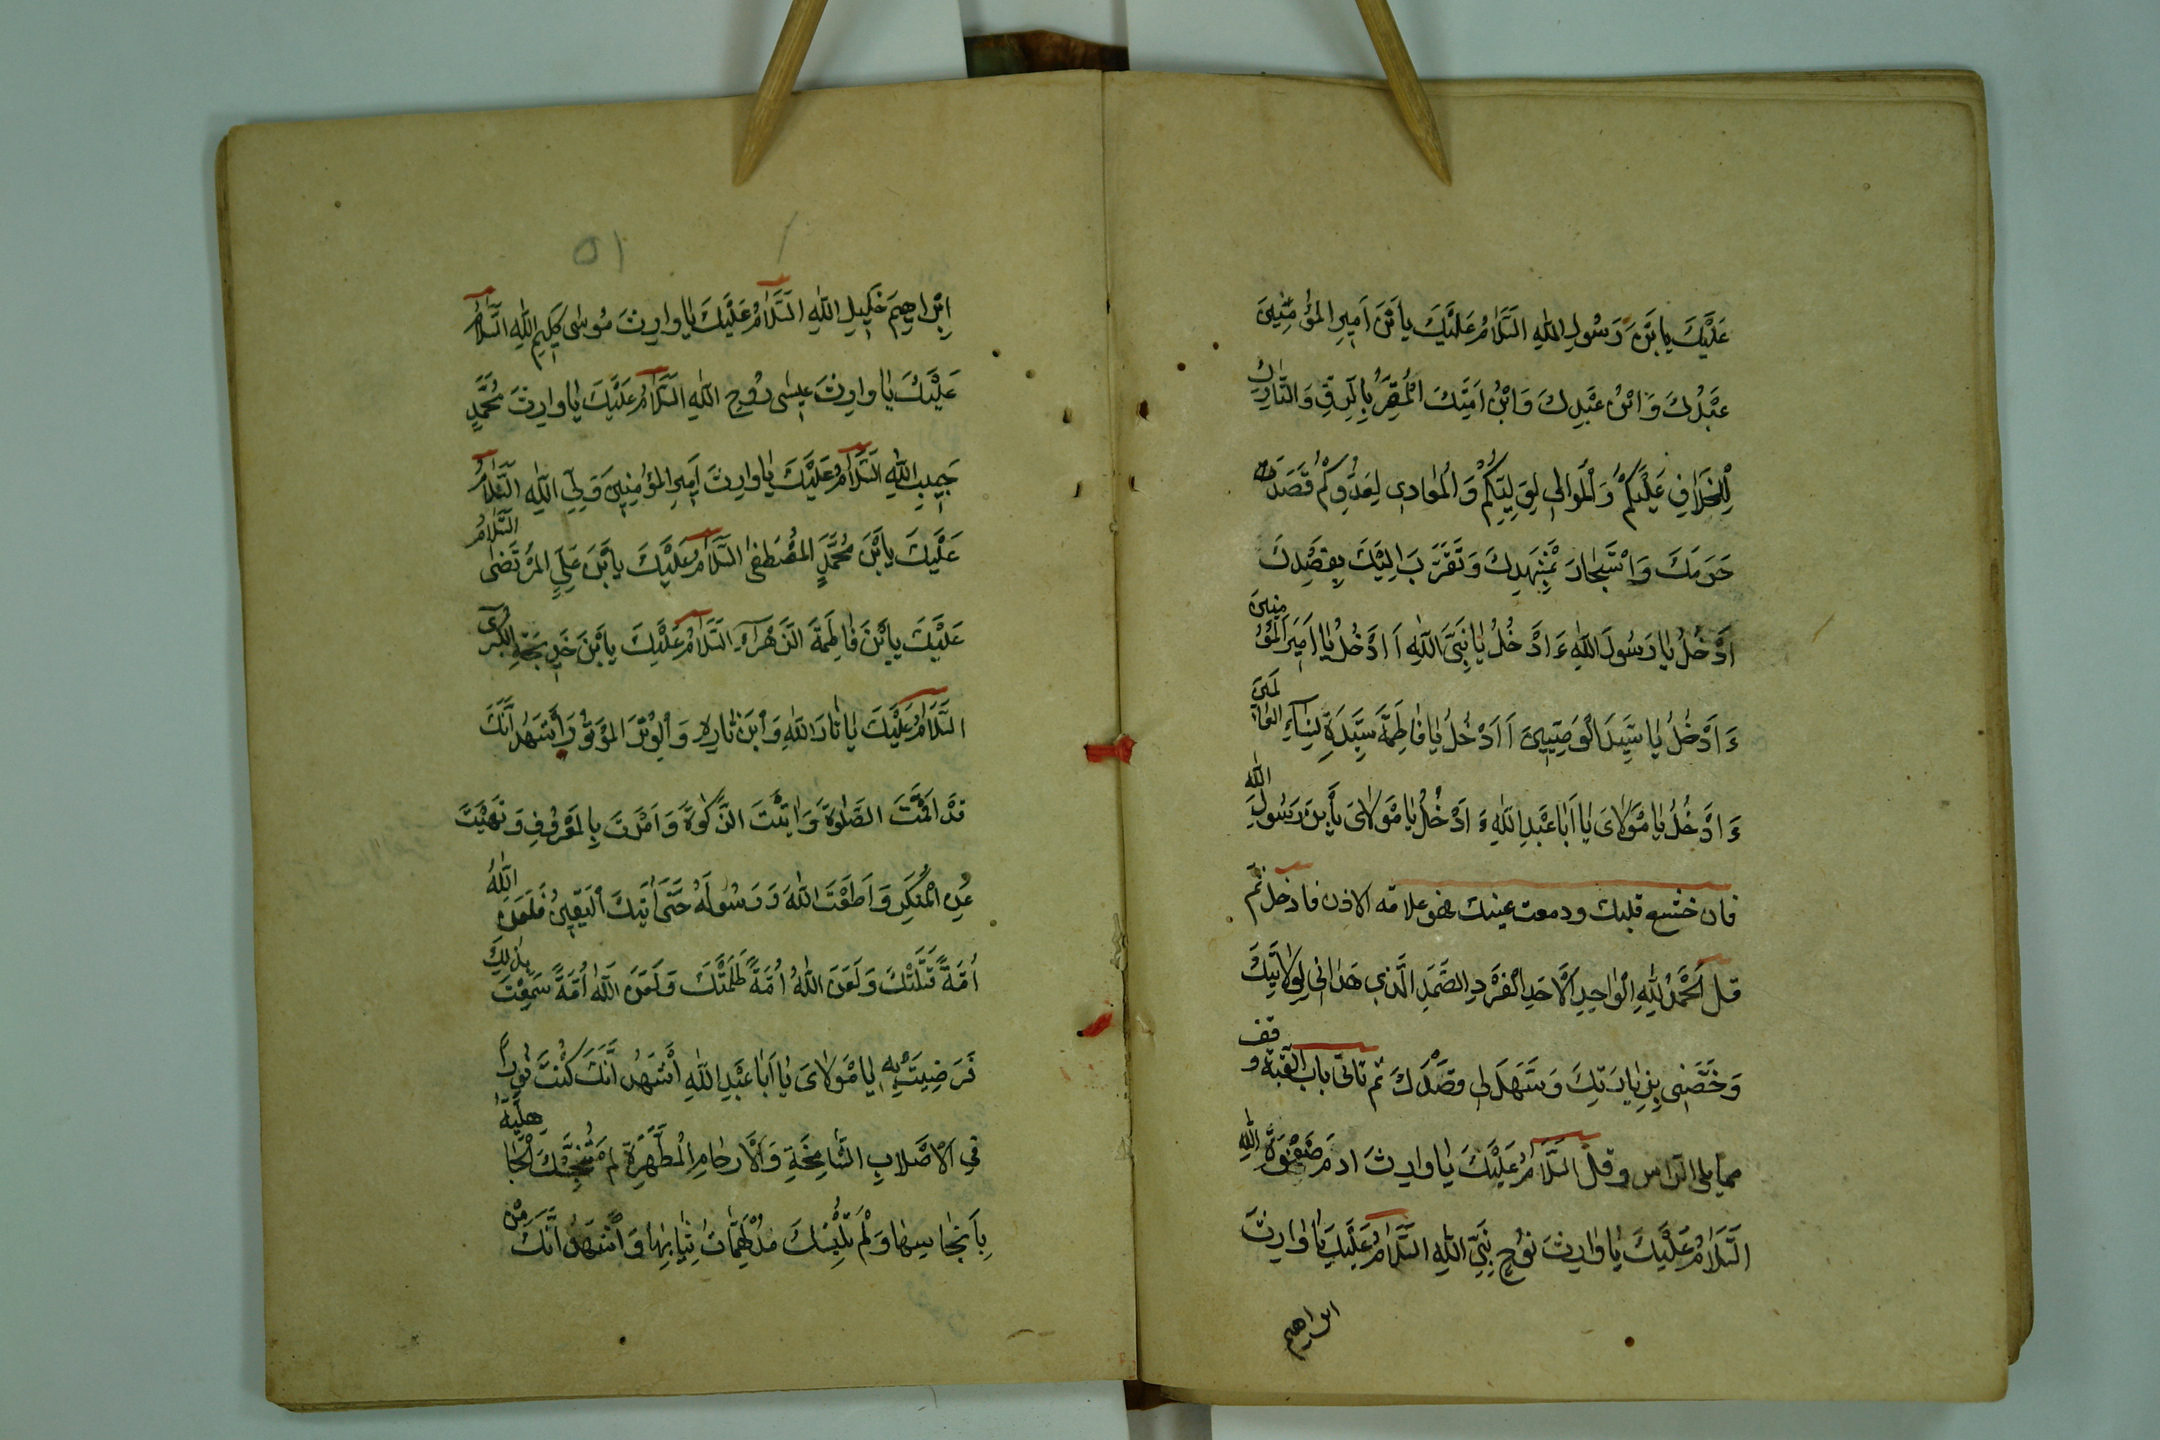 عَلَيْكَ يَا بْنَ رَسُولِ اللهِ السَّلَامُ عَلَيْكَ يَا بْنَ اَمِيرِ الْمُؤْمِنِينَ
عَبْدُكَ وَابْنُ عَبْدِكَ وَابْنُ اَمَتِكَ الْمُقِرُّ بِالرِّقِّ وَالتَّارِكُ
لِلْخِلَافِ عَلَيْكُمْ وَالْمُوَالِي لِوَلِيِّكُمْ وَالْمُعَادِي لِعَدُوِّكُمْ قَصَدَ
حَرَمَكَ وَاسْتَجَارَ بِمَشْهَدِكَ وَتَقَرَّبَ اِلَيْكَ بِقَصْدِكَ
ءَاَدْخُلُ يَا رَسُولَ اللهِ ءَاَدْخُلُ يَا نَبِيَّ اللهِ ءَاَدْخُلُ يَا اَمِيرَ الْمُؤْمِنِينَ
ءَاَدْخُلُ يَا سَيِّدَ الْوَصِيِّينَ ءَاَدْخُلُ يَا فَاطِمَةَ سَيِّدَةِ نِسَاءِ الْعَالَمِينَ
ءَاَدْخُلُ يَا مَوْلَايَ يَا اَبَا عَبْدِ اللهِ ءَاَدْخُلُ يَا مَوْلَايَ يَا بْنَ رَسُولِ اللهِ
فان خشع قلبك ودمعت عينك فهو علامة الاذن فادخل ثم
قل اَلْحَمْدُ لِلّٰهِ الْوَاحِدِ الْاَحَدِ الْفَرْدِ الصَّمَدِ الَّذِي هَدَانِي لِوِلَايَتِكَ
وَخَصَّنِي بِزِيَارَتِكَ وَسَهَّلَ لِي قَصْدَكَ ثم تاتي باب القبة وقف
مما يلي الراس وقل السَّلَامُ عَلَيْكَ يَا وَارِثَ ادَمَ صَفْوَةِ اللهِ
السَّلَامُ عَلَيْكَ يَا وَارِثَ نُوحٍ نَبِيِّ اللهِ السَّلَامُ عَلَيْكَ يَا وَارِثَ
ابراهيم
٥١
اِبْرَاهِيمَ خَلِيلِ اللهِ السَّلَامُ عَلَيْكَ يَا وَارِثَ مُوسَى كَلِيمِ اللهِ السَّلَامُ
عَلَيْكَ يَا وَارِثَ عِيسَى رُوحِ اللهِ السَّلَامُ عَلَيْكَ يَا وَارِثَ مُحَمَّدٍ
حَبِيبِ اللهِ السَّلَامُ عَلَيْكَ يَا وَارِثَ اَمِيرِ الْمُؤْمِنِينَ وَلِيِّ اللهِ السَّلَامُ
عَلَيْكَ يَا بْنَ مُحَمَّدٍ الْمُصْطَفَى السَّلَامُ عَلَيْكَ يَا بْنَ عَلِيٍّ الْمُرْتَضَى السَّلَامُ
عَلَيْكَ يَا بْنَ فَاطِمَةَ الزَّهْرَاءِ السَّلَامُ عَلَيْكَ يَا بْنَ خَدِيجَةَ الْكُبْرَى
السَّلَامُ عَلَيْكَ يَا ثَارَ اللهِ وَابْنَ ثَارِهِ وَالْوِتْرَ الْمَوْتُورَ اَشْهَدُ اَنَّكَ
قَدْ اَقَمْتَ الصَّلٰوةَ وَاتَيْتَ الزَّكٰوةَ وَاَمَرْتَ بِالْمَعْرُوفِ وَنَهَيْتَ
عَنِ الْمُنْكَرِ وَاَطَعْتَ اللهَ وَرَسُولَهُ حَتَّى اَتٰيكَ الْيَقِينُ فَلَعَنَ اللهُ
اُمَّةً قَتَلَتْكَ وَلَعَنَ اللهُ اُمَّةً ظَلَمَتْكَ وَلَعَنَ اللهُ اُمَّةً سَمِعَتْ بِذٰلِكَ
فَرَضِيَتْ بِهِ يَا مَوْلَايَ يَا اَبَا عَبْدِ اللهِ اَشْهَدُ اَنَّكَ كُنْتَ نُوراً
فِي الْاَصْلَابِ الشَّامِخَةِ وَالْاَرْحَامِ الْمُطَهَّرَةِ لَمْ تُنَجِّسْكَ الْجَاهِلِيَّةُ
بِاَنْجَاسِهَا وَلَمْ تُلْبِسْكَ مُدْلَهِمَّاتُ ثِيَابِهَا وَاَشْهَدُ اَنَّكَ مِنْ